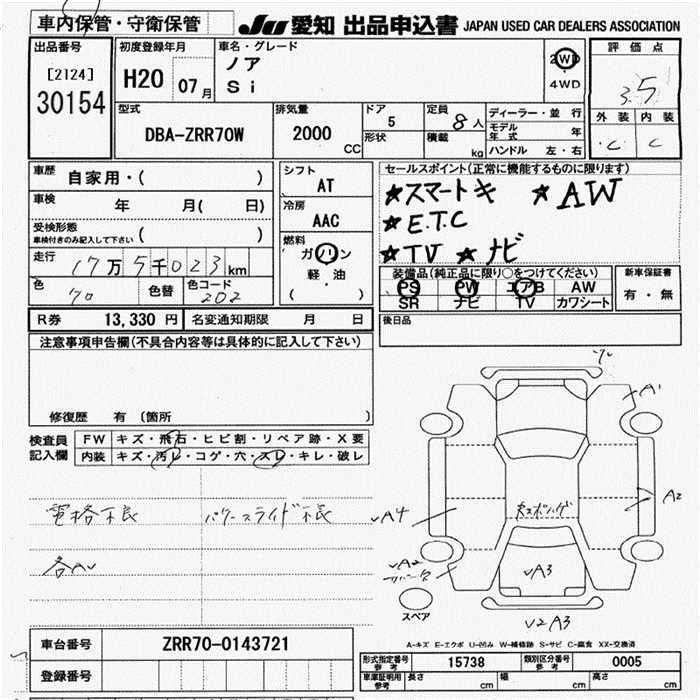 車内保管・守衛保管 JU 愛知 出品申込書 JAPAN USED CAR DEALERS ASSOCIATION
出品番号 初度登録年月 車名・グレード 評価点
[2124] H20 07月 ノア 2WD
30154 Si 4WD 3.5
型式 排気量 ドア 定員 ディーラー・並行 外装 内装
DBA-ZRR70W 2000CC 5 8人 モデル年式 年 C C
形状 積載 kg ハンドル 左・右
車歴 自家用・( ) シフト セールスポイント(正常に機能するものに限ります)
車検 年 月( 日) AT ★スマートキ ★AW
受検形態 冷房 ★E.T.C
車検付きのみ記入して下さい ( ) AAC ★TV ★ナビ
走行 17万5千023km 燃料 ガソリン 装備品(純正品に限り○をつけてください) 新車保証書
色 70 色替 色コード 202 軽・油 PS PW エアB AW 有・無
( ) SR ナビ TV カワシート
R券 13,330円 名変通知期限 月 日 後日品
注意事項申告欄(不具合内容等は具体的に記入して下さい)
修復歴 有 〔箇所 〕
検査員 FW キズ・飛石・ヒビ割・リペア跡・X要
記入欄 内装 キズ・汚レ・コゲ・穴・スレ・キレ・破レ
電格不良 パワースライド不良
各AU
A1
A2
A4
A2
A3
スペア
U2A3
A-キズ E-エクボ U-凹み W-補修跡 S-サビ C-腐食 XX-交換済
車台番号 ZRR70-0143721 形式指定番号 参考 15738 類別区分番号 参考 0005
登録番号 車庫証明用 参考 長さ cm 幅 cm 高さ cm